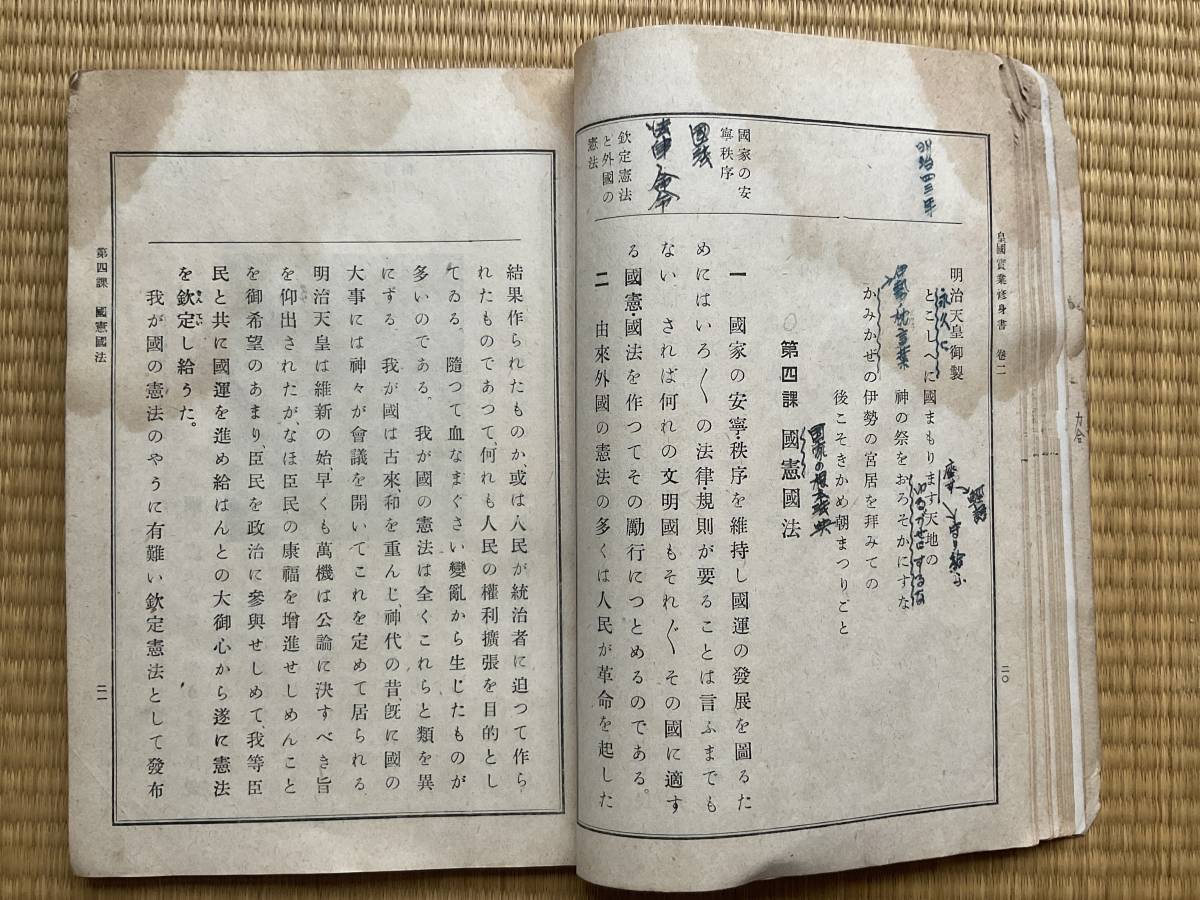 皇國實業修身書 卷二
二〇
明治四三年
明治天皇御製
とこしへに國まもります天地の
永久に
神の祭をおろそかにすな
ゆるがせにするな
かみかぜの伊勢の宮居を拜みての
伊勢の枕言葉
後こそきかめ朝まつりごと
第四課 國憲國法
国家の根本法典
國家の安
寧秩序
国議
法律命令
欽定憲法
と外國の
憲法
一 國家の安寧・秩序を維持し國運の發展を圖るた
めにはいろ〳〵の法律・規則が要ることは言ふまでも
ない されば何れの文明國もそれ〴〵その國に適す
る國憲・國法を作つてその勵行につとめるのである。
二 由來外國の憲法の多くは人民が革命を起した
結果作られたものか、或は人民が統治者に迫つて作ら
れたものであつて、何れも人民の權利擴張を目的とし
てゐる。 隨つて血なまぐさい變亂から生じたものが
多いのである。 我が國の憲法は全くこれらと類を異
にする。 我が國は古來、和を重んじ、神代の昔、旣に國の
大事には神々が會議を開いてこれを定めて居られる
明治天皇は維新の始早くも萬機は公論に決すべき旨
を仰出されたが、なほ臣民の康福を增進せしめんこと
を御希望のあまり、臣民を政治に參與せしめて、我等臣
民と共に國運を進め給はんとの大御心から遂に憲法
を欽定し給うた。
きんてい
我が國の憲法のやうに有難い欽定憲法として發布
第四課 國憲國法
二一